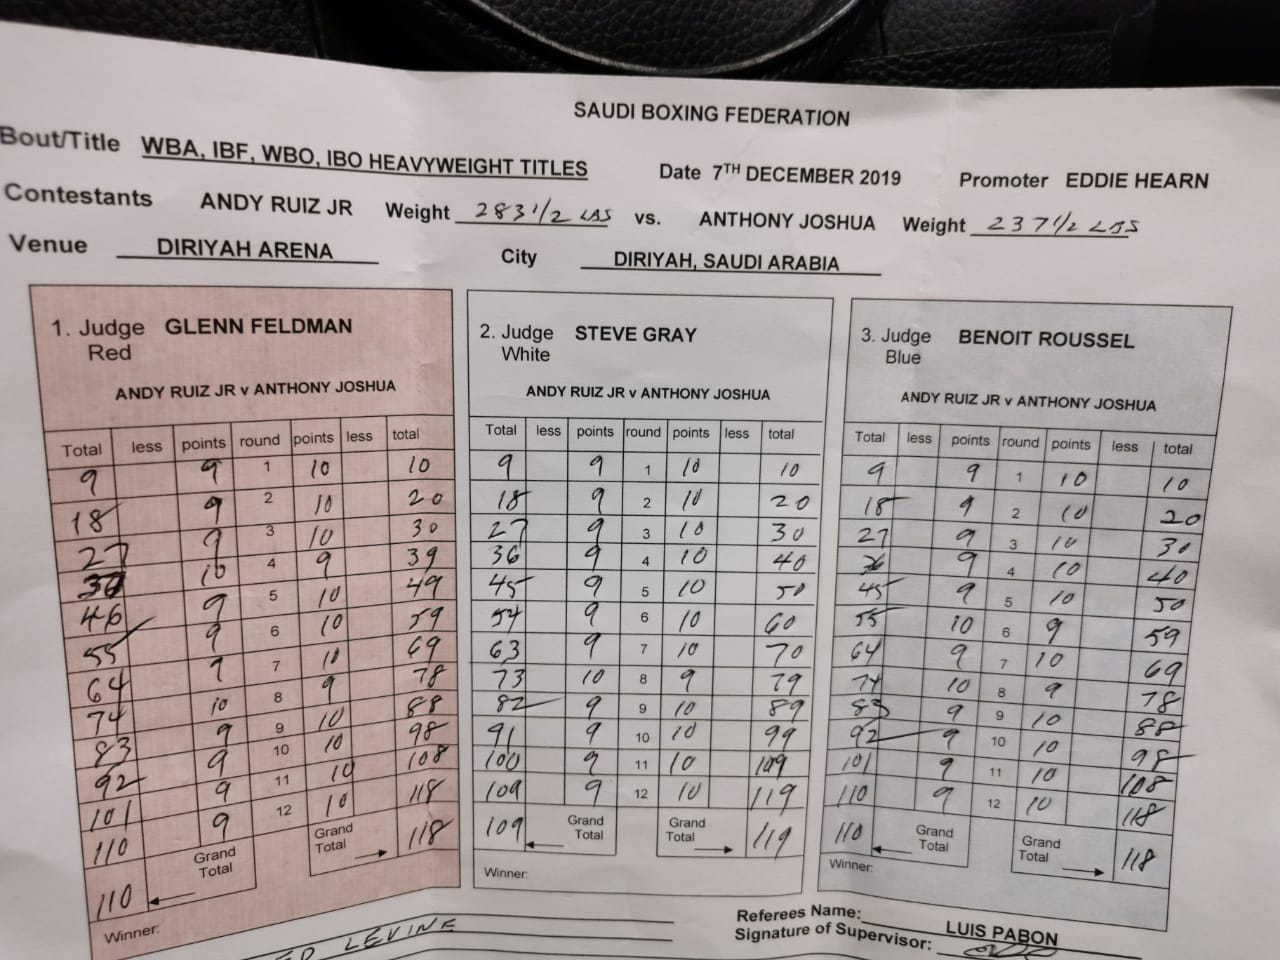 SAUDI BOXING FEDERATION
Bout/Title WBA, IBF, WBO, IBO HEAVYWEIGHT TITLES Date 7TH DECEMBER 2019 Promoter EDDIE HEARN
Contestants ANDY RUIZ JR Weight 283 1/2 LBS vs. ANTHONY JOSHUA Weight 237 1/2 LBS
Venue DIRIYAH ARENA City DIRIYAH, SAUDI ARABIA
1. Judge GLENN FELDMAN
Red
ANDY RUIZ JR v ANTHONY JOSHUA
Total less points round points less total
9 9 1 10 10
18 9 2 10 20
27 9 3 10 30
10 4 9 39
46 9 5 10 49
55 9 6 10 59
64 9 7 10 69
74 10 8 9 78
83 9 9 10 88
92 9 10 10 98
101 9 11 10 108
110 9 12 10 118
110 Grand Total Grand Total 118
Winner:
2. Judge STEVE GRAY
White
ANDY RUIZ JR v ANTHONY JOSHUA
Total less points round points less total
9 9 1 10 10
18 9 2 10 20
27 9 3 10 30
36 9 4 10 40
45 9 5 10 50
54 9 6 10 60
63 9 7 10 70
73 10 8 9 79
82 9 9 10 89
91 9 10 10 99
100 9 11 10 109
109 9 12 10 119
109 Grand Total Grand Total 119
Winner:
3. Judge BENOIT ROUSSEL
Blue
ANDY RUIZ JR v ANTHONY JOSHUA
Total less points round points less total
9 9 1 10 10
18 9 2 10 20
27 9 3 10 30
36 9 4 10 40
45 9 5 10 50
55 10 6 9 59
64 9 7 10 69
74 10 8 9 78
83 9 9 10 88
92 9 10 10 98
101 9 11 10 108
110 9 12 10 118
110 Grand Total Grand Total 118
Winner:
LEVINE
Referees Name: LUIS PABON
Signature of Supervisor: